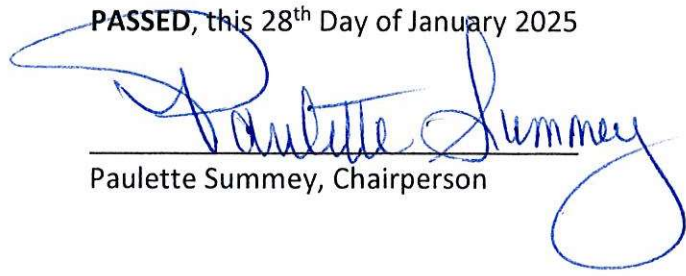 PASSED, this 28th Day of January 2025
Paulette Summey
Paulette Summey, Chairperson